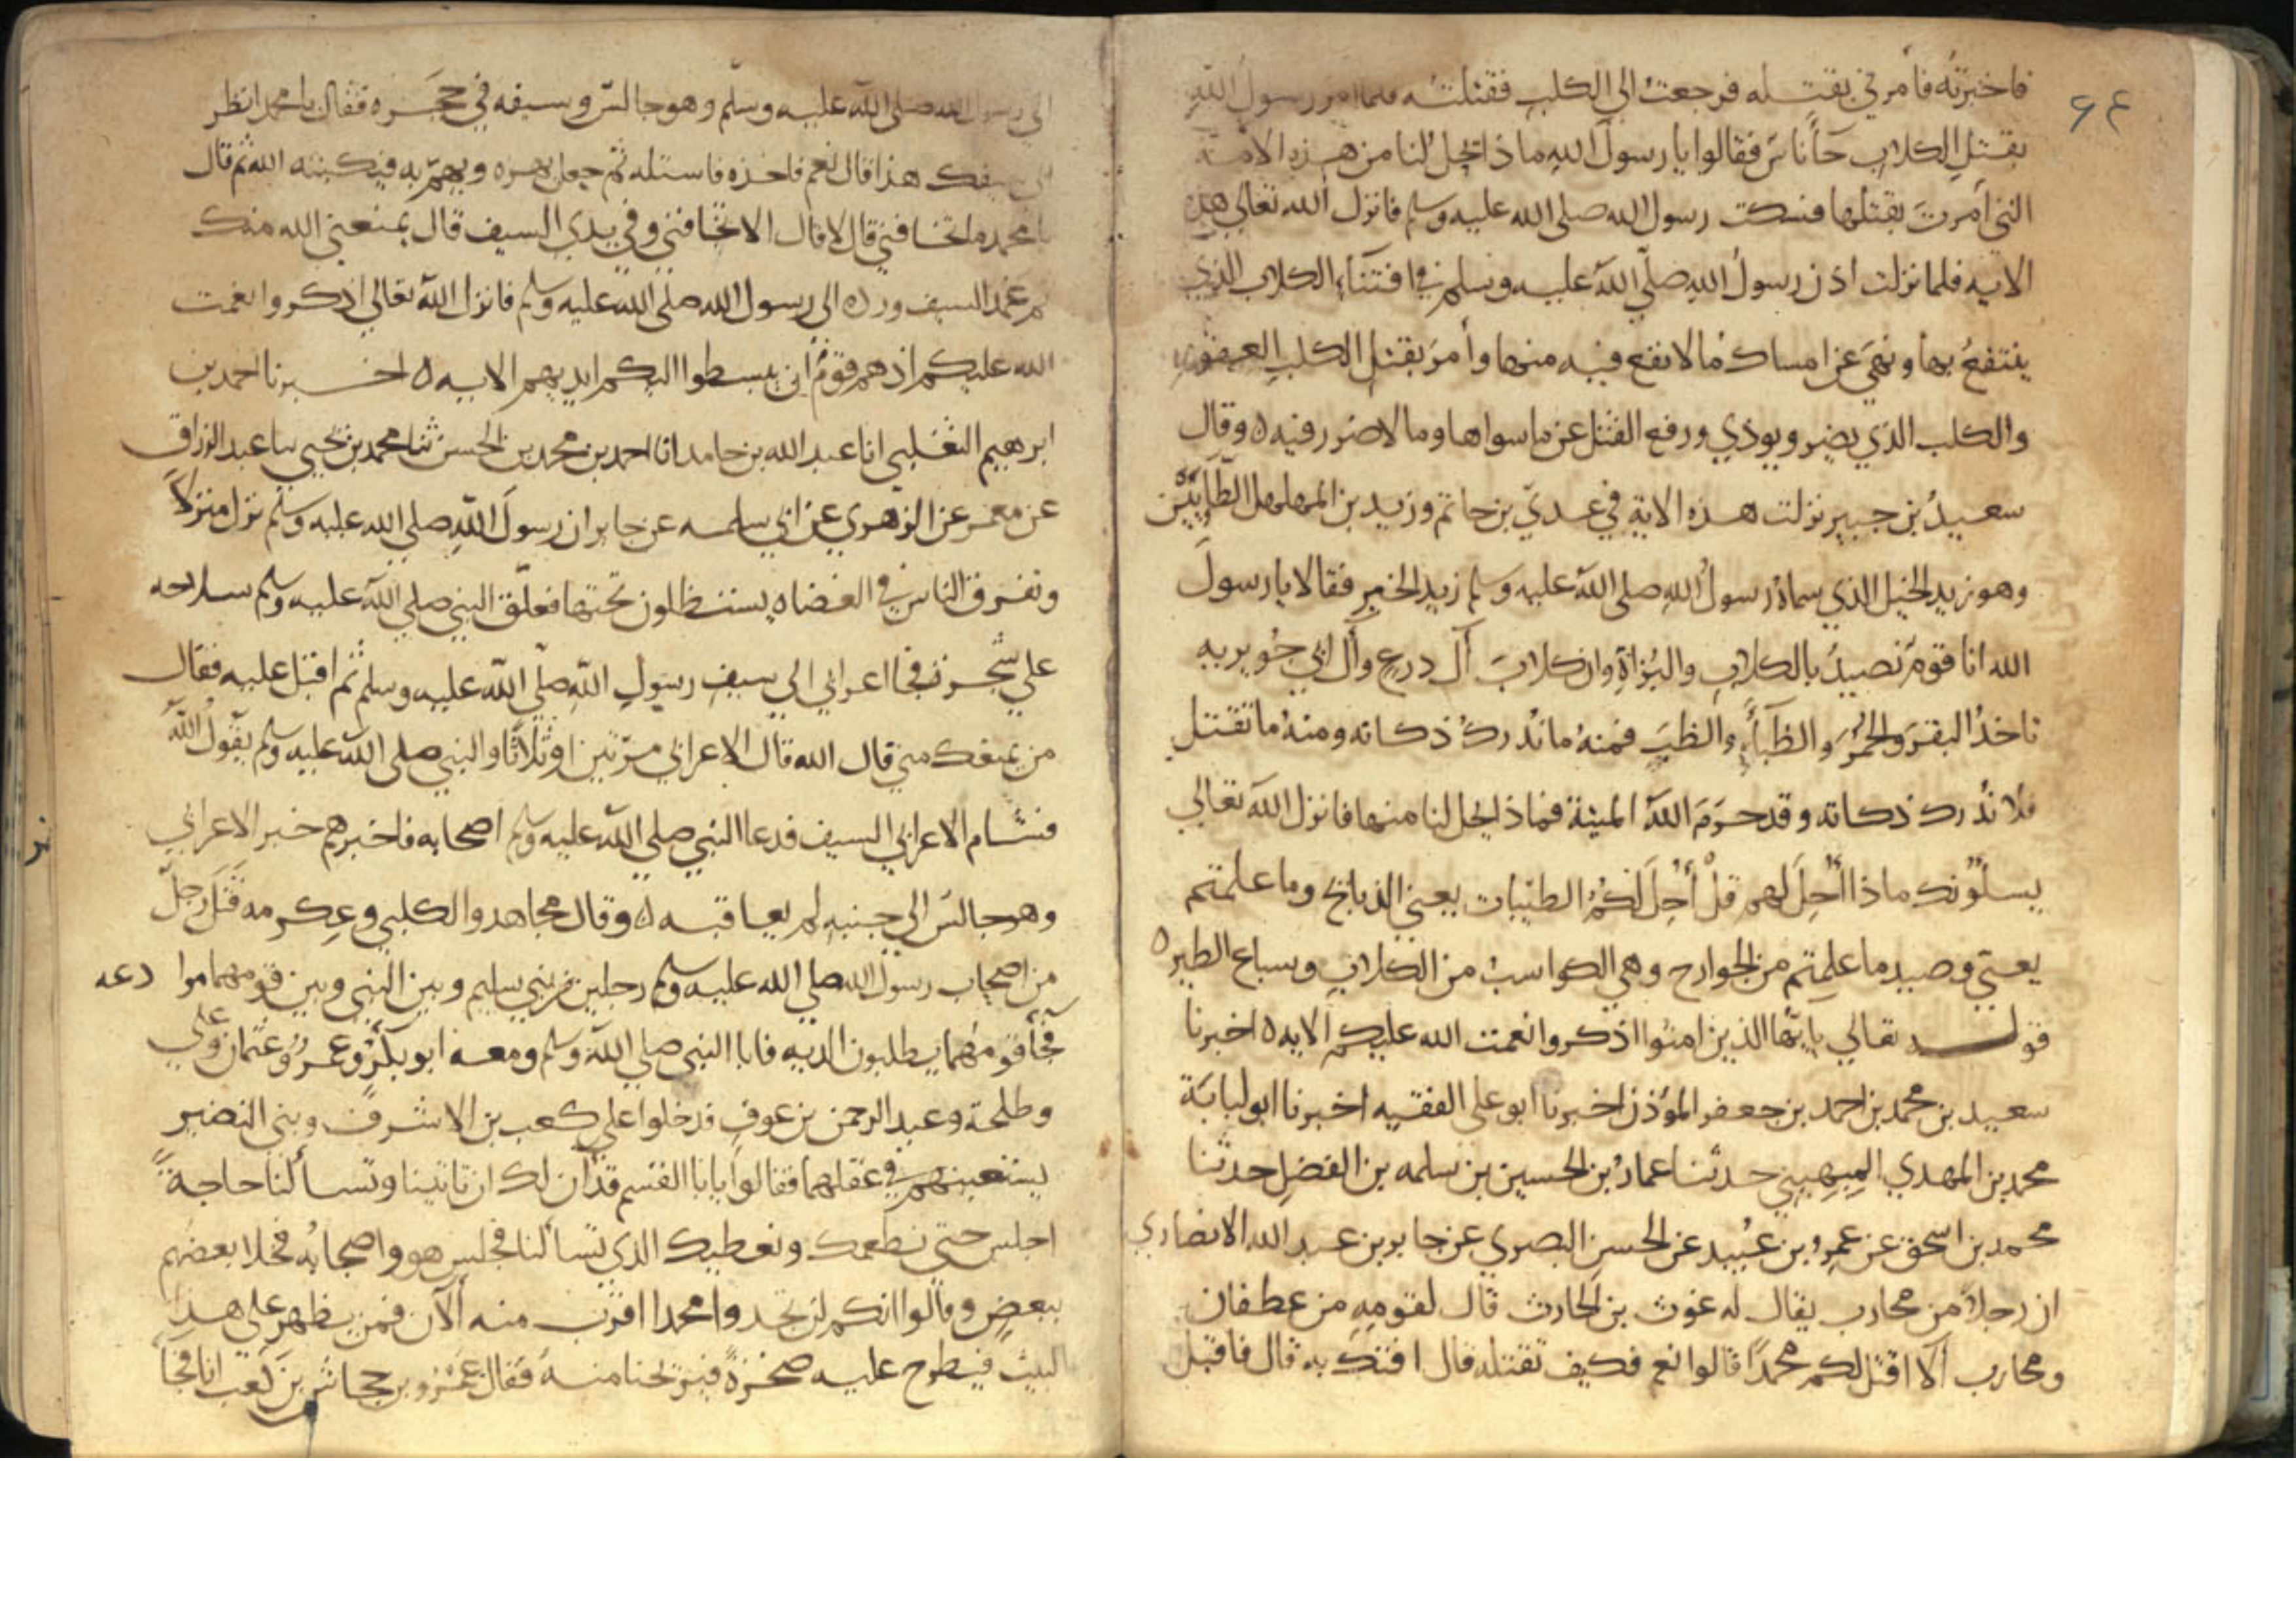 ٦٤
فاخبرته فأمرني بقتله فرجعت الي الكلب فقتلته فلما امر رسول الله
بقتل الكلاب جأ ناس فقالوا يا رسول الله ماذا يحل لنا من هذه الامة
التي امرت بقتلها فسكت رسول الله صلى الله عليه وسلم فانزل الله تعالي هذه
الايه فلما نزلت اذن رسول الله صلى الله عليه وسلم في اقتناء الكلاب الذي
ينتفع بها ونهى عن امساك ما لا نفع فيه منها وأمر بقتل الكلب العقور
والكلب الذي يضر ويوذي ورفع القتل عن ما سواها وما لا ضرر فيه ٥ وقال
سعيد بن جبير نزلت هذه الاية في عدي بن حاتم وزيد بن المهلهل الطائيين
وهو زيد الخيل الذي سماه رسول الله صلى الله عليه وسلم زيد الخير فقالا يا رسول
الله انا قوم نصيد بالكلاب والبزاة وان كلاب آل درع وآل ابي جويريه
تاخذ البقر والحمر والظبأ والظب فمنه ما ندرك ذكاته ومنه ما تقتل
فلا ندرك ذكاته وقد حرم الله الميتة فماذا يحل لنا منها فانزل الله تعالي
يسلونك ماذا أحل لهم قل أحل لكم الطيبات يعني الذبايح وما علمتم
يعني وصيد ما علمتم من الجوارح وهي الكواسب من الكلاب وسباع الطير ٥
قوله تعالي يايها الذين امنوا اذكروا نعمت الله عليكم الايه ٥ اخبرنا
سعيد بن محمد بن احمد بن جعفر المؤذن اخبرنا ابو على الفقيه اخبرنا ابو لبابة
محمد بن المهدي الميهيني حدثنا عمار بن الحسين بن سلمه بن الفضل حدثنا
محمد بن اسحق عن عمرو بن عبيد عن الحسن البصري عن جابر بن عبد الله الانصاري
ان رجلا من محارب يقال له غوث بن الحارث قال لقومه من عطفان
ومحارب ألا اقتل لكم محمدا قالوا نعم فكيف تقتله قال افتك به قال فاقبل
الي رسول الله صلى الله عليه وسلم وهو جالس وسيفه في حجره فقال يا محمد انظر
الي سيفك هذا قال نعم فاخذه فاستله ثم جعل يهزه ويهم به فيكبته الله ثم قال
يا محمد ما تخافني قال لا قال الا تخافني وفي يدي السيف قال يمنعني الله منك
ثم غمد السيف ورده الى رسول الله صلى الله عليه وسلم فانزل الله تعالي اذكروا نعمت
الله عليكم اذ هم قوم ان يبسطوا اليكم ايديهم الايه ٥ اخبرنا احمد بن
ابرهيم الثعلبي انا عبد الله بن حامد انا احمد بن محمد بن الحسن ثنا محمد بن يحيي نا عبد الرزاق
عن معمر عن الزهري عن ابي سلمه عن جابر ان رسول الله صلى الله عليه وسلم نزل منزلا
وتفرق الناس في العضاه يستظلون تحتها فعلق النبي صلي الله عليه وسلم سلاحه
علي شجرة فجا اعرابي الي سيف رسول الله صلي الله عليه وسلم ثم اقبل عليه فقال
من يمنعك مني قال الله قال الاعرابي مرتين او ثلاثا والنبي صلى الله عليه وسلم يقول الله
فشام الاعرابي السيف فدعا النبي صلي الله عليه وسلم اصحابه فاخبرهم خبر الاعرابي
وهو جالس الي جنبه لم يعاقبه ٥ وقال مجاهد والكلبي وعكرمه قتل رجل
من اصحاب رسول الله صلي الله عليه وسلم رجلين من بني سليم وبين النبي وبين قومهما موادعه
فجأ قومهما يطلبون الديه فاتا النبي صلي الله وسلم ومعه ابو بكر وعمر وعثمان وعلي
وطلحة وعبد الرحمن بن عوف فدخلوا علي كعب بن الاشرف وبني النضير
يستعينهم في عقلهما فقالوا يا ابا القسم قد آن لك ان تاتينا وتسألنا حاجة
اجلس حتى نطعمك ونعطيك الذي تسألنا فجلس هو واصحابه فخلا بعضهم
ببعض وقالوا انكم لن تجدوا محمدا اقرب منه الآن فمن يظهر على هذا
البيت فيطرح عليه صخرة فيريحنا منه فقال عمرو بن جحاش بن كعب انا فجأ